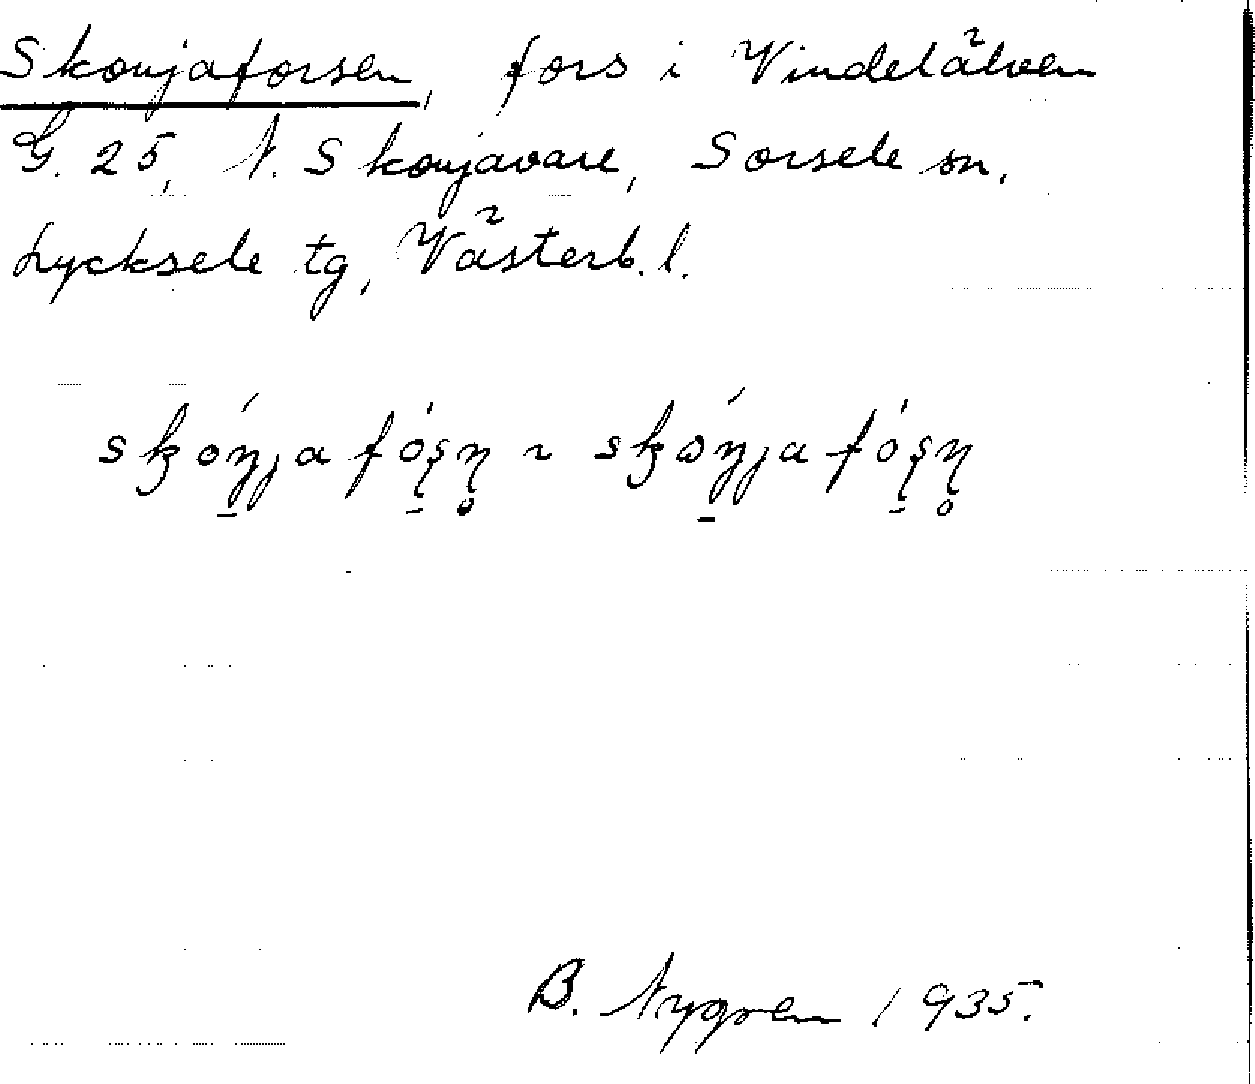 Skonjaforsen, fors i Vindelälven
G. 25, N. Skonjavare, Sorsele sn.
Lycksele tg, Västerb. l.
skońjafóşņ ~ skɔńjafóşņ
B. Nygren 1935.